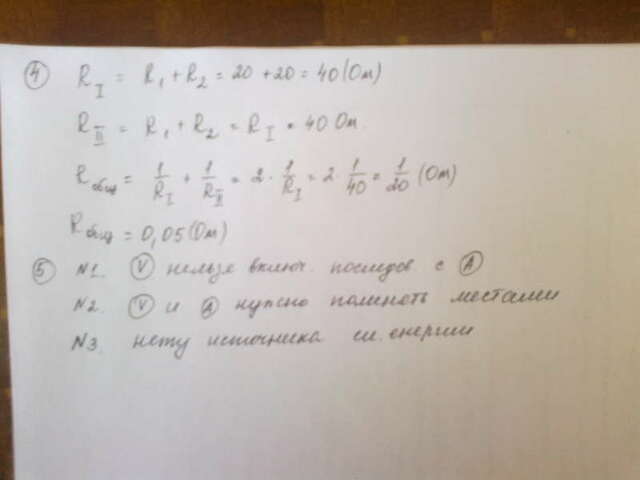 ④ R_I = R₁ + R₂ = 20 + 20 = 40 (Ом)
R_II = R₁ + R₂ = R_I = 40 Ом.
R общ = 1/R_I + 1/R_II = 2 · 1/R_I = 2 · 1/40 = 1/20 (Ом)
R общ = 0,05 (Ом)
⑤ N1. Ⓥ нельзе включ. последов. с Ⓐ
N2. Ⓥ и Ⓐ нужно поменять местами
N3. нету источника эл. енергии